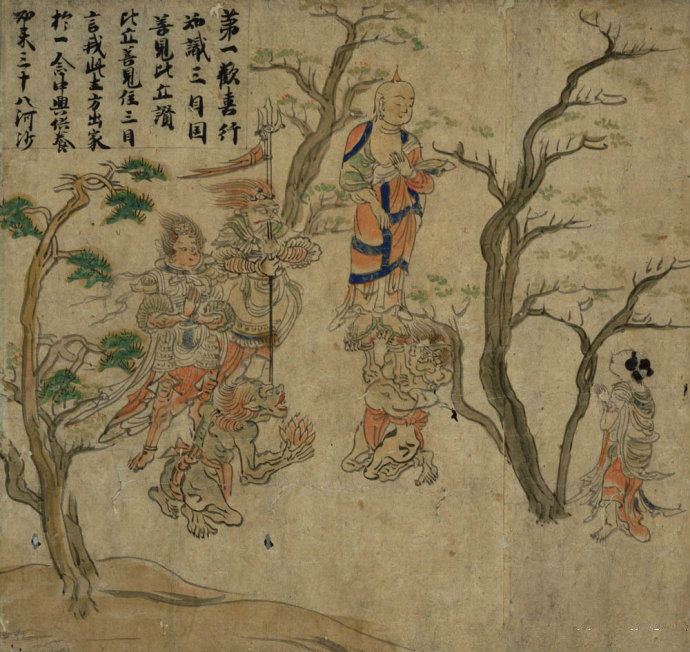 第一歡喜行
知識三目国
善見比丘讃
比丘善見住三目
言我此生方出家
於一念中興供養
如来三十八河沙